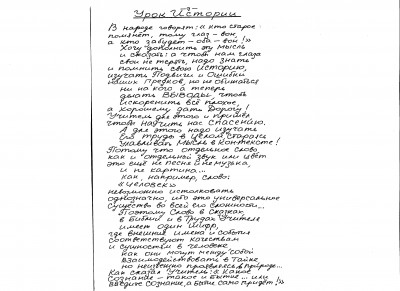 Урок Истории
В народе говорят: а кто старое
помянет, тому глаз - вон,
а кто забудет - оба - вон!»
Хочу дополнить эту мысль
и сказать: а чтобы нам глаза
свои не терять, надо знать
и помнить свою Историю,
изучать Подвиги и Ошибки
наших Предков, но не обижаться
ни на кого а теперь
делать ВЫВОДЫ, чтобы
Искоренить всё плохое,
а хорошему дать Дорогу!
Учитель для этого и пришёл
чтобы научить нас Спасению.
А для этого надо изучать
Его труды в целом, стараясь
улавливать Мысль в Контексте!
Потому что отдельное слово
как и отдельный звук или цвет
это ещё не песня и не музыка,
и не картина...
как, например, слово:
«человек»
невозможно истолковать
однозначно, ибо это универсальное
существо во всей его сложности...
Поэтому Слово в сказках,
в Библии и в Трудах Учителя
имеет один Шифр,
где внешние имена и события
соответствуют качествам
и сущностям в человеке
как они могут между собой
взаимодействовать в Тайне
но неизбежно проявляясь в природе...
Как сказал Учитель: «Какое
сознание - такое и Бытие... или
введите Сознание, а Бытие само придёт!»